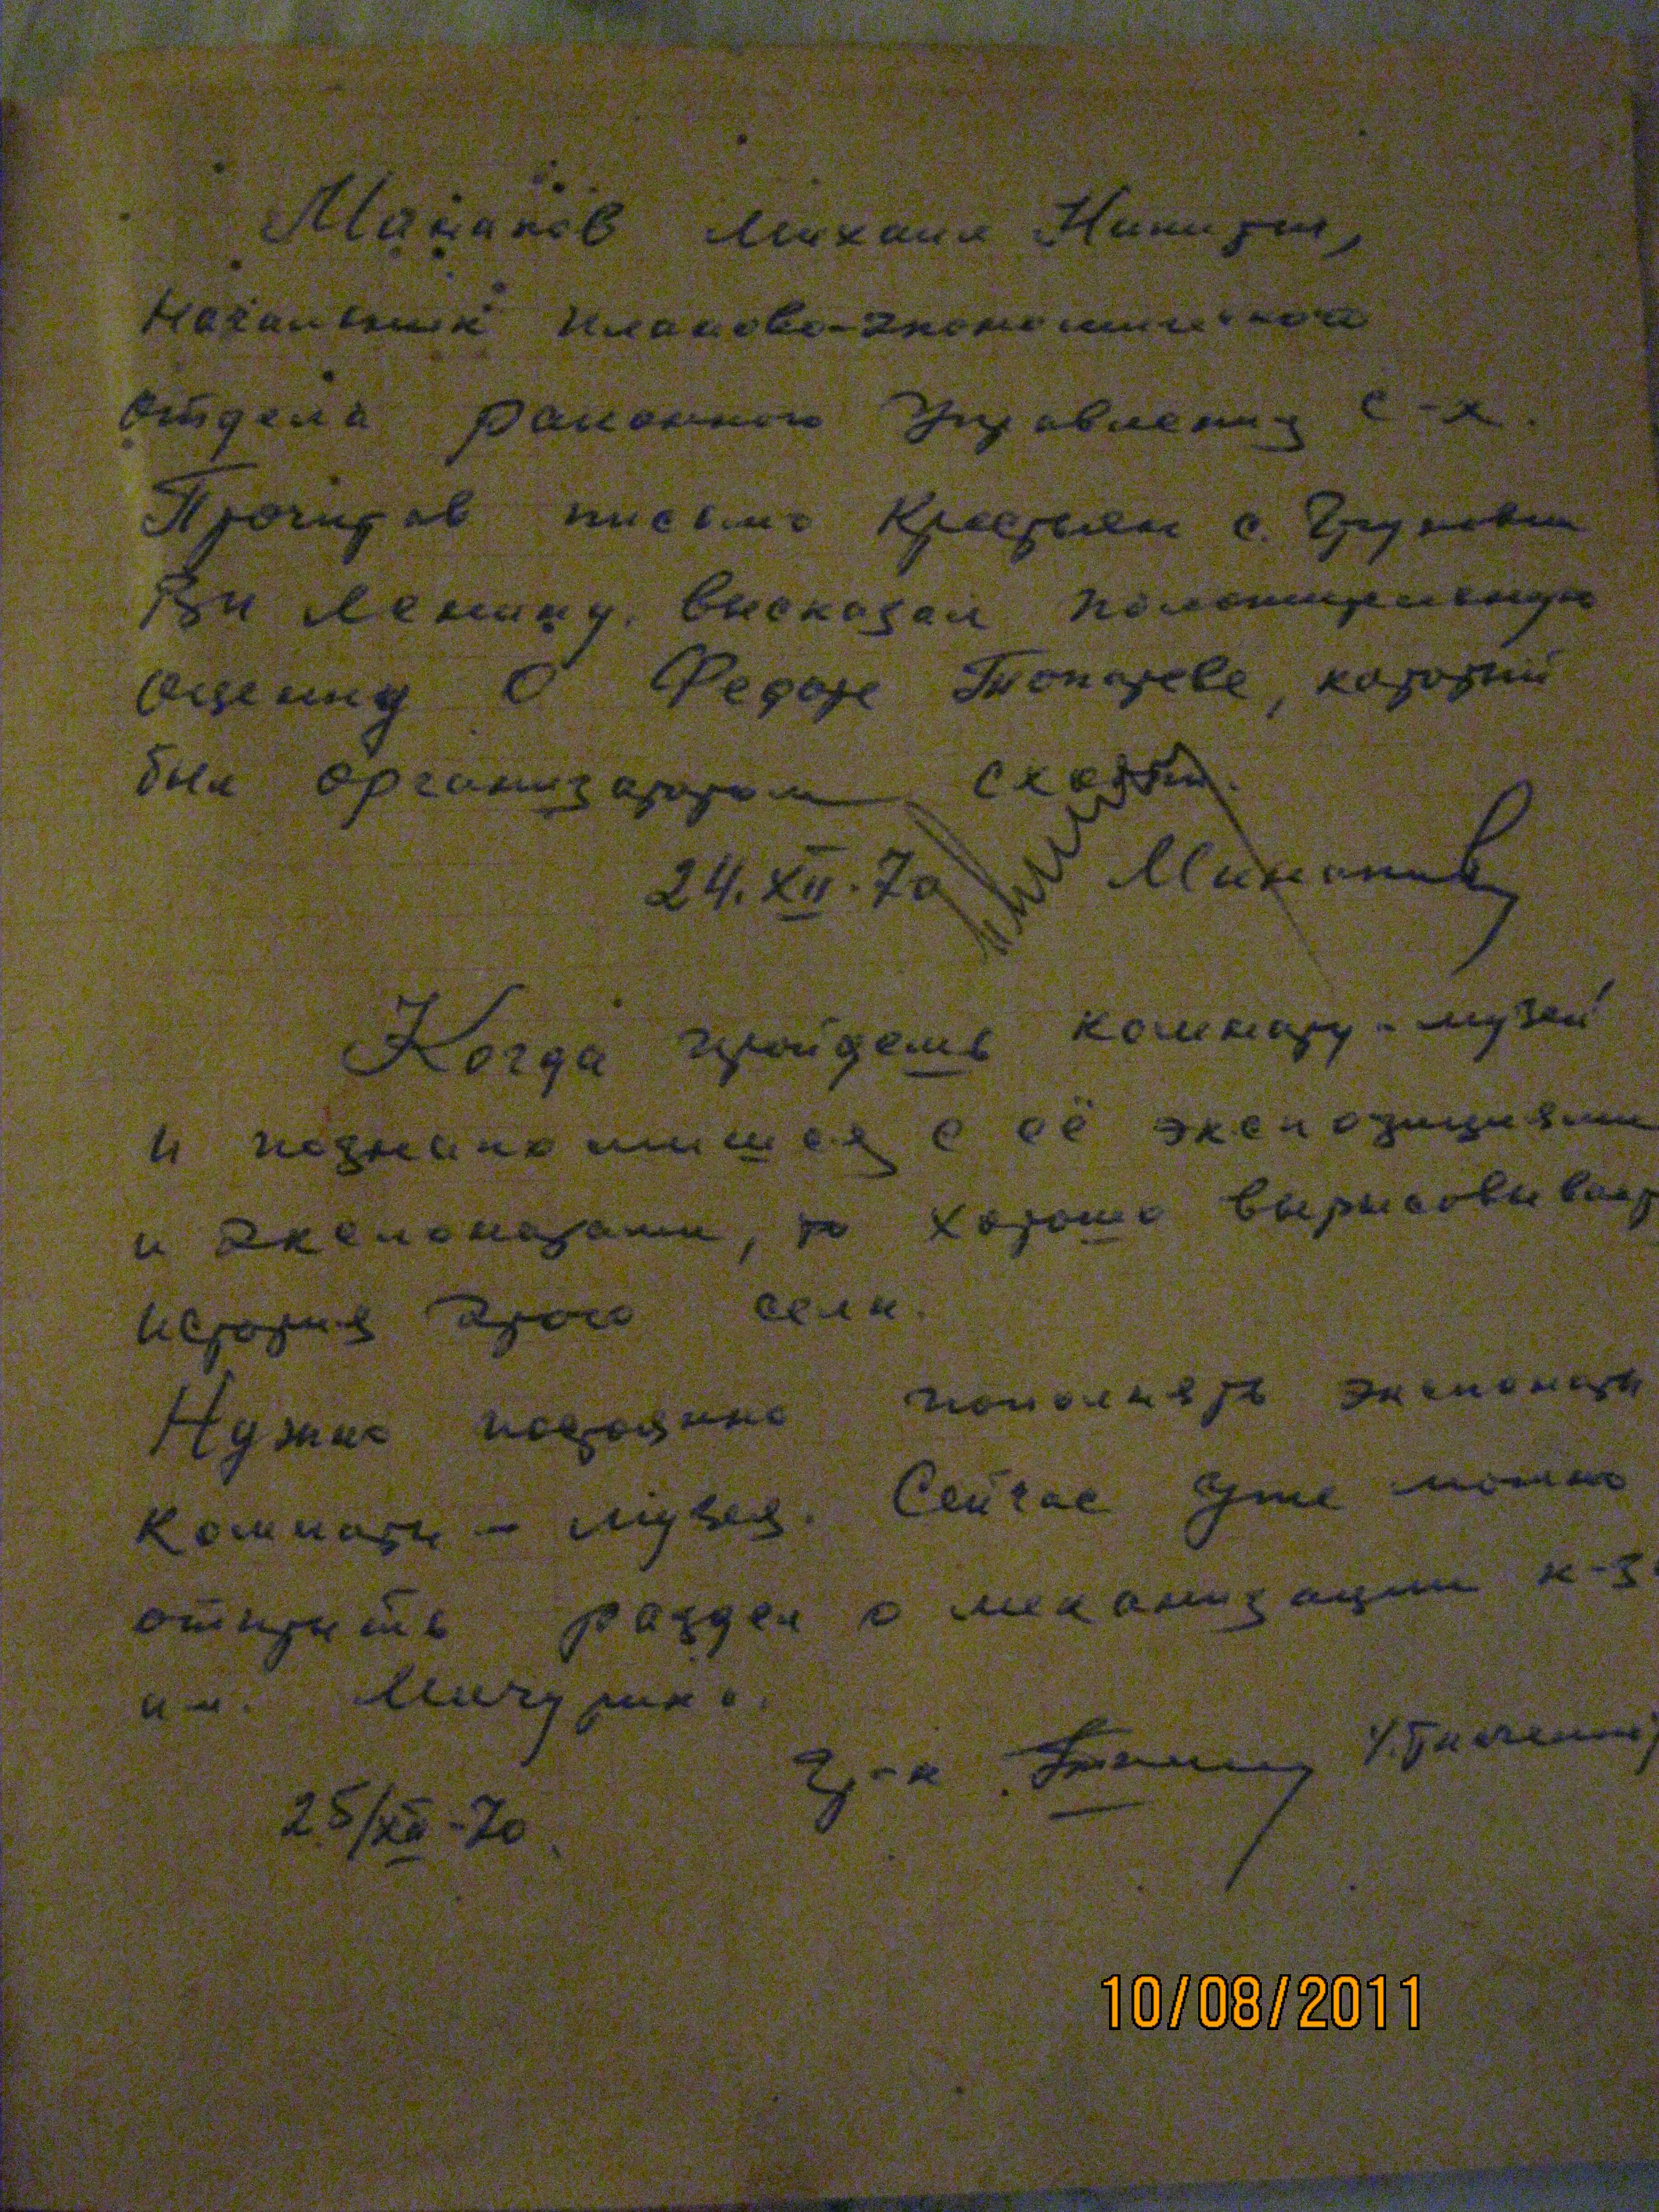 Михаил
Начальник планово-экономического
отдела районного Управления с-х.
Прочитав письмо крестьян с.
Ви Ленину, высказал положительную
оценку о Федоре Токареве, который
был организатором
24.XII.70
Когда пройдешь комнату-музей
и познакомишся с её экспозициями
и экспонатами, то хорошо вырисовывает
история этого села.
Нужно постоянно пополнять экспонаты
комнаты - музея. Сейчас уже можно
открыть раздел о механизации к-з
им. Мичурина.
25/XII-70
10/08/2011